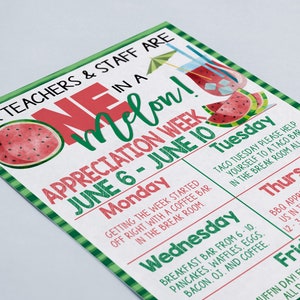 TEACHERS & STAFF ARE
ONE IN A
Melon!
APPRECIATION WEEK
JUNE 6 - JUNE 10
Monday
GETTING THE WEEK STARTED
OFF RIGHT WITH A COFFEE BAR
IN THE BREAK ROOM
Tuesday
TACO TUESDAY PLEASE HELP
YOURSELF TO A TACO BAR
IN THE BREAK ROOM ALL
Wednesday
BREAKFAST BAR FROM 6 - 10.
PANCAKES, WAFFLES, EGGS,
BACON, OJ, AND COFFEE